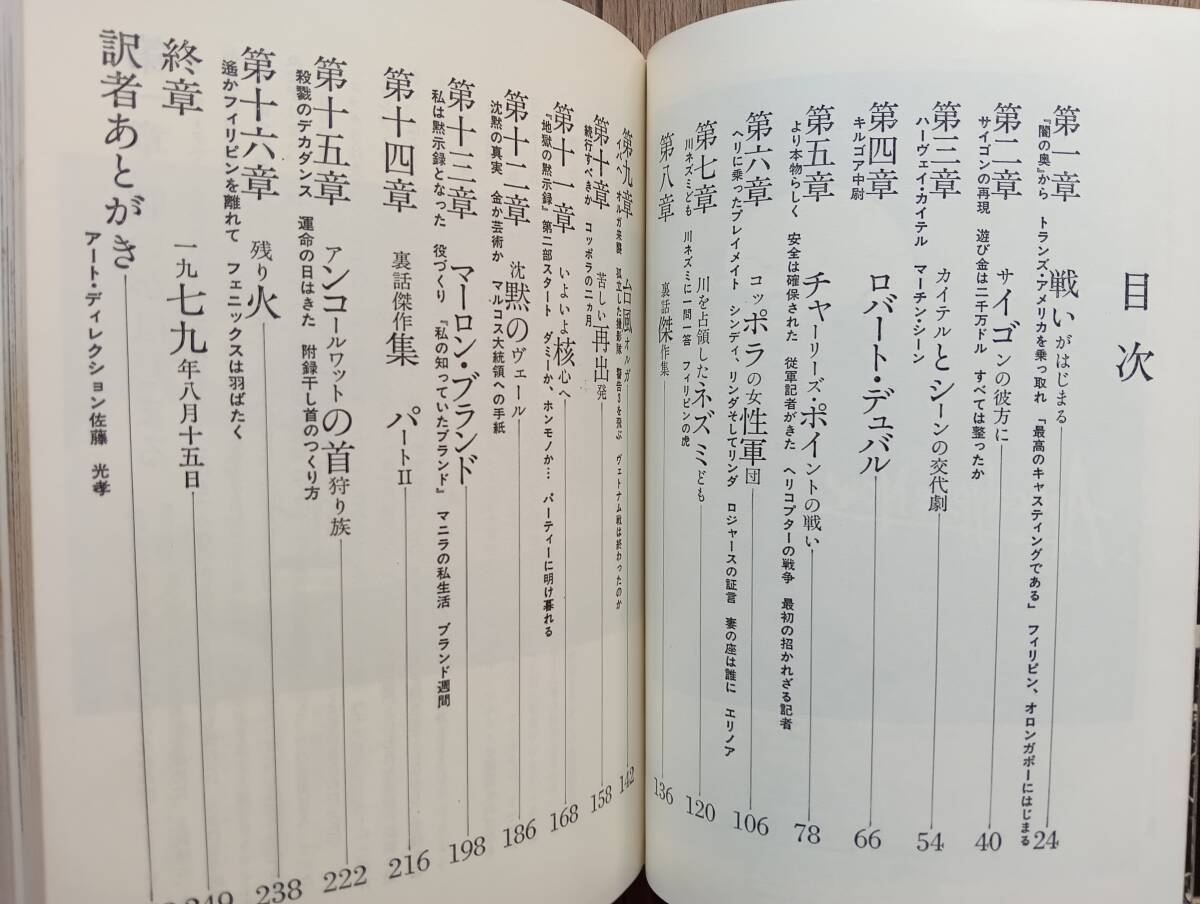 目次
第一章 戦いがはじまる 24
『闇の奥』から トランズ・アメリカを乗っ取れ 「最高のキャスティングである」 フィリピン、オロンガポーにはじまる
第二章 サイゴンの彼方に 40
サイゴンの再現 遊び金は二千万ドル すべては整ったか
第三章 カイテルとシーンの交代劇 54
ハーヴェイ・カイテル マーチン・シーン
第四章 ロバート・デュバル 66
キルゴア中尉
第五章 チャーリーズ・ポイントの戦い 78
より本物らしく 安全は確保された 従軍記者がきた ヘリコプターの戦争 最初の招かれざる記者
第六章 コッポラの女性軍団 106
ヘリに乗ったプレイメイト シンディ、リンダそしてリンダ ロジャースの証言 妻の座は誰に エリノア
第七章 川を占領したネズミども 120
川ネズミども 川ネズミに一問一答 フィリピンの虎
第八章 裏話傑作集 136
第九章 台風オルガ 142
イバ、オルガ来襲 孤立した撮影隊 警告3を飛ぶ ヴェトナム戦は終わったのか
第十章 苦しい再出発 158
続行すべきか コッポラの二ヵ月
第十一章 いよいよ核心へ 168
『地獄の黙示録』第二部スタート ダミーか、ホンモノか… パーティーに明け暮れる
第十二章 沈黙のヴェール 186
沈黙の真実 金か芸術か マルコス大統領への手紙
第十三章 マーロン・ブランド 198
私は黙示録となった 役づくり 『私の知っていたブランド』 マニラの私生活 ブランド週間
第十四章 裏話傑作集 パートⅡ 216
第十五章 アンコールワットの首狩り族 222
殺戮のデカダンス 運命の日はきた 附録干し首のつくり方
第十六章 残り火 238
遙かフィリピンを離れて フェニックスは羽ばたく
終章 一九七九年八月十五日 249
訳者あとがき
アート・ディレクション佐藤 光孝